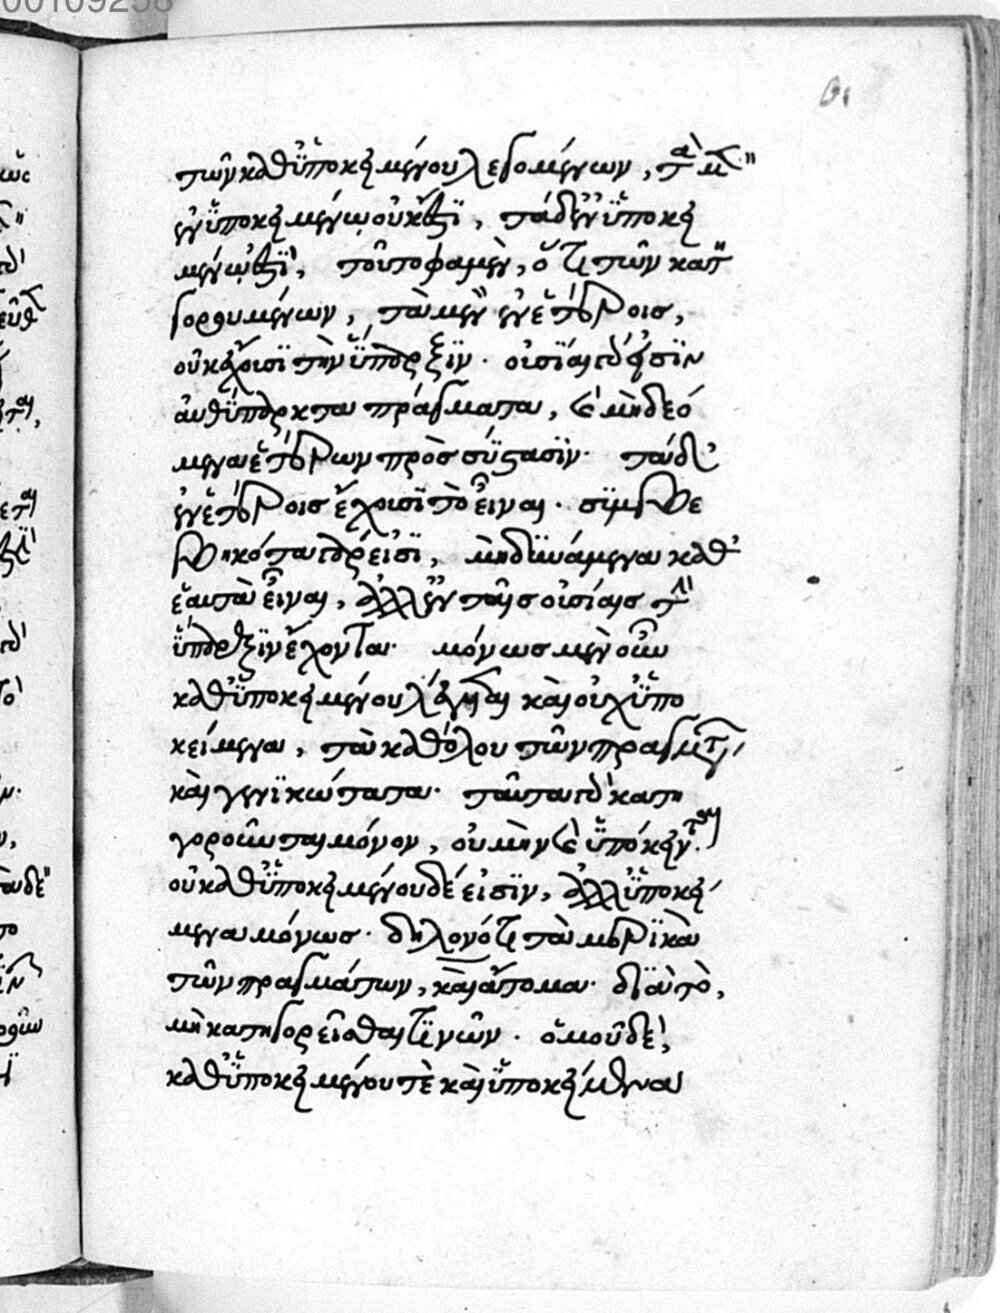 00109258
τῶν καθ' ὑποκειμένου λεγομένων, τὰ μὲν
ἐν ὑποκειμένῳ οὐκ ἔστι, τὰ δ' ἐν ὑποκει
μένῳ ἐστί, τοῦτο φαμὲν, ὅτι τῶν κατη
γορουμένων, τὰ μὲν ἐν ἑτέροις,
οὐκ ἔχουσι τὴν ὕπαρξιν. οὐσίαι δ' εἰσὶν
αὐθύπαρκτα πράγματα, καὶ μὴ δεό
μενα ἑτέρων πρὸς σύστασιν. τὰ δ'
ἐν ἑτέροις ἔχουσι τὸ εἶναι. συμβε
βηκότα δέ εἰσι, μὴ δυνάμενα καθ'
ἑαυτὰ εἶναι, ἀλλ' ἐν ταῖς οὐσίαις τὴν
ὕπαρξιν ἔχοντα. μόνως μὲν οὖν
καθ' ὑποκειμένου λέγεται καὶ οὐχ ὑπο
κείμενα, τὰ καθόλου τῶν πραγμάτων,
καὶ γενικώτατα. ταῦτα δὲ κατη
γοροῦνται μόνον, οὐ μὴν καὶ ὑπόκεινται.
οὐ καθ' ὑποκειμένου δέ εἰσιν, ἀλλ' ὑποκεί
μενα μόνως. δηλονότι τὰ μερικὰ
τῶν πραγμάτων, καὶ ἄτομα. διὰ τὸ,
μὴ κατηγορεῖσθαι τινῶν. ὁμοῦ δὲ,
καθ' ὑποκειμένου τὲ καὶ ὑποκείμενα